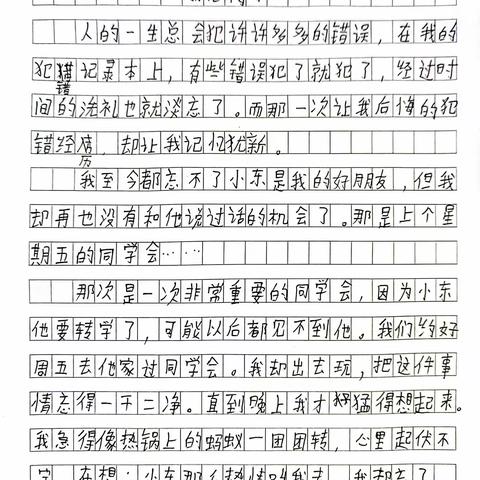 人的一生总会犯许许多多的错误，在我的
犯错记录本上，有些错误犯了就犯了，经过时
间的洗礼也就淡忘了。而那一次让我后悔的犯
错经历，却让我记忆犹新。
我至今都忘不了小东是我的好朋友，但我
却再也没有和他说过话的机会了。那是上个星
期五的同学会……
那次是一次非常重要的同学会，因为小东
他要转学了，可能以后都见不到他。我们约好
周五去他家过同学会。我却出去玩，把这件事
情忘得一干二净。直到晚上我才猛得想起来。
我急得像热锅上的蚂蚁一团团转，心里起伏不
定，在想：小东那么热情叫我去，我却忘了